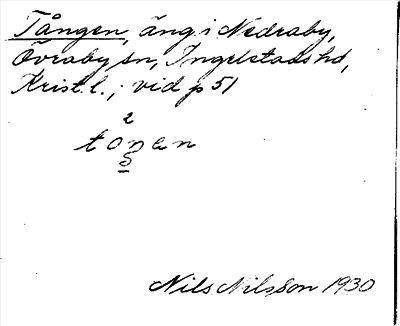 Tången, äng i Nedraby,
Övraby sn, Ingelstads hd,
Krist. l., vid p 51
2
tonen
Nils Nilsson 1930